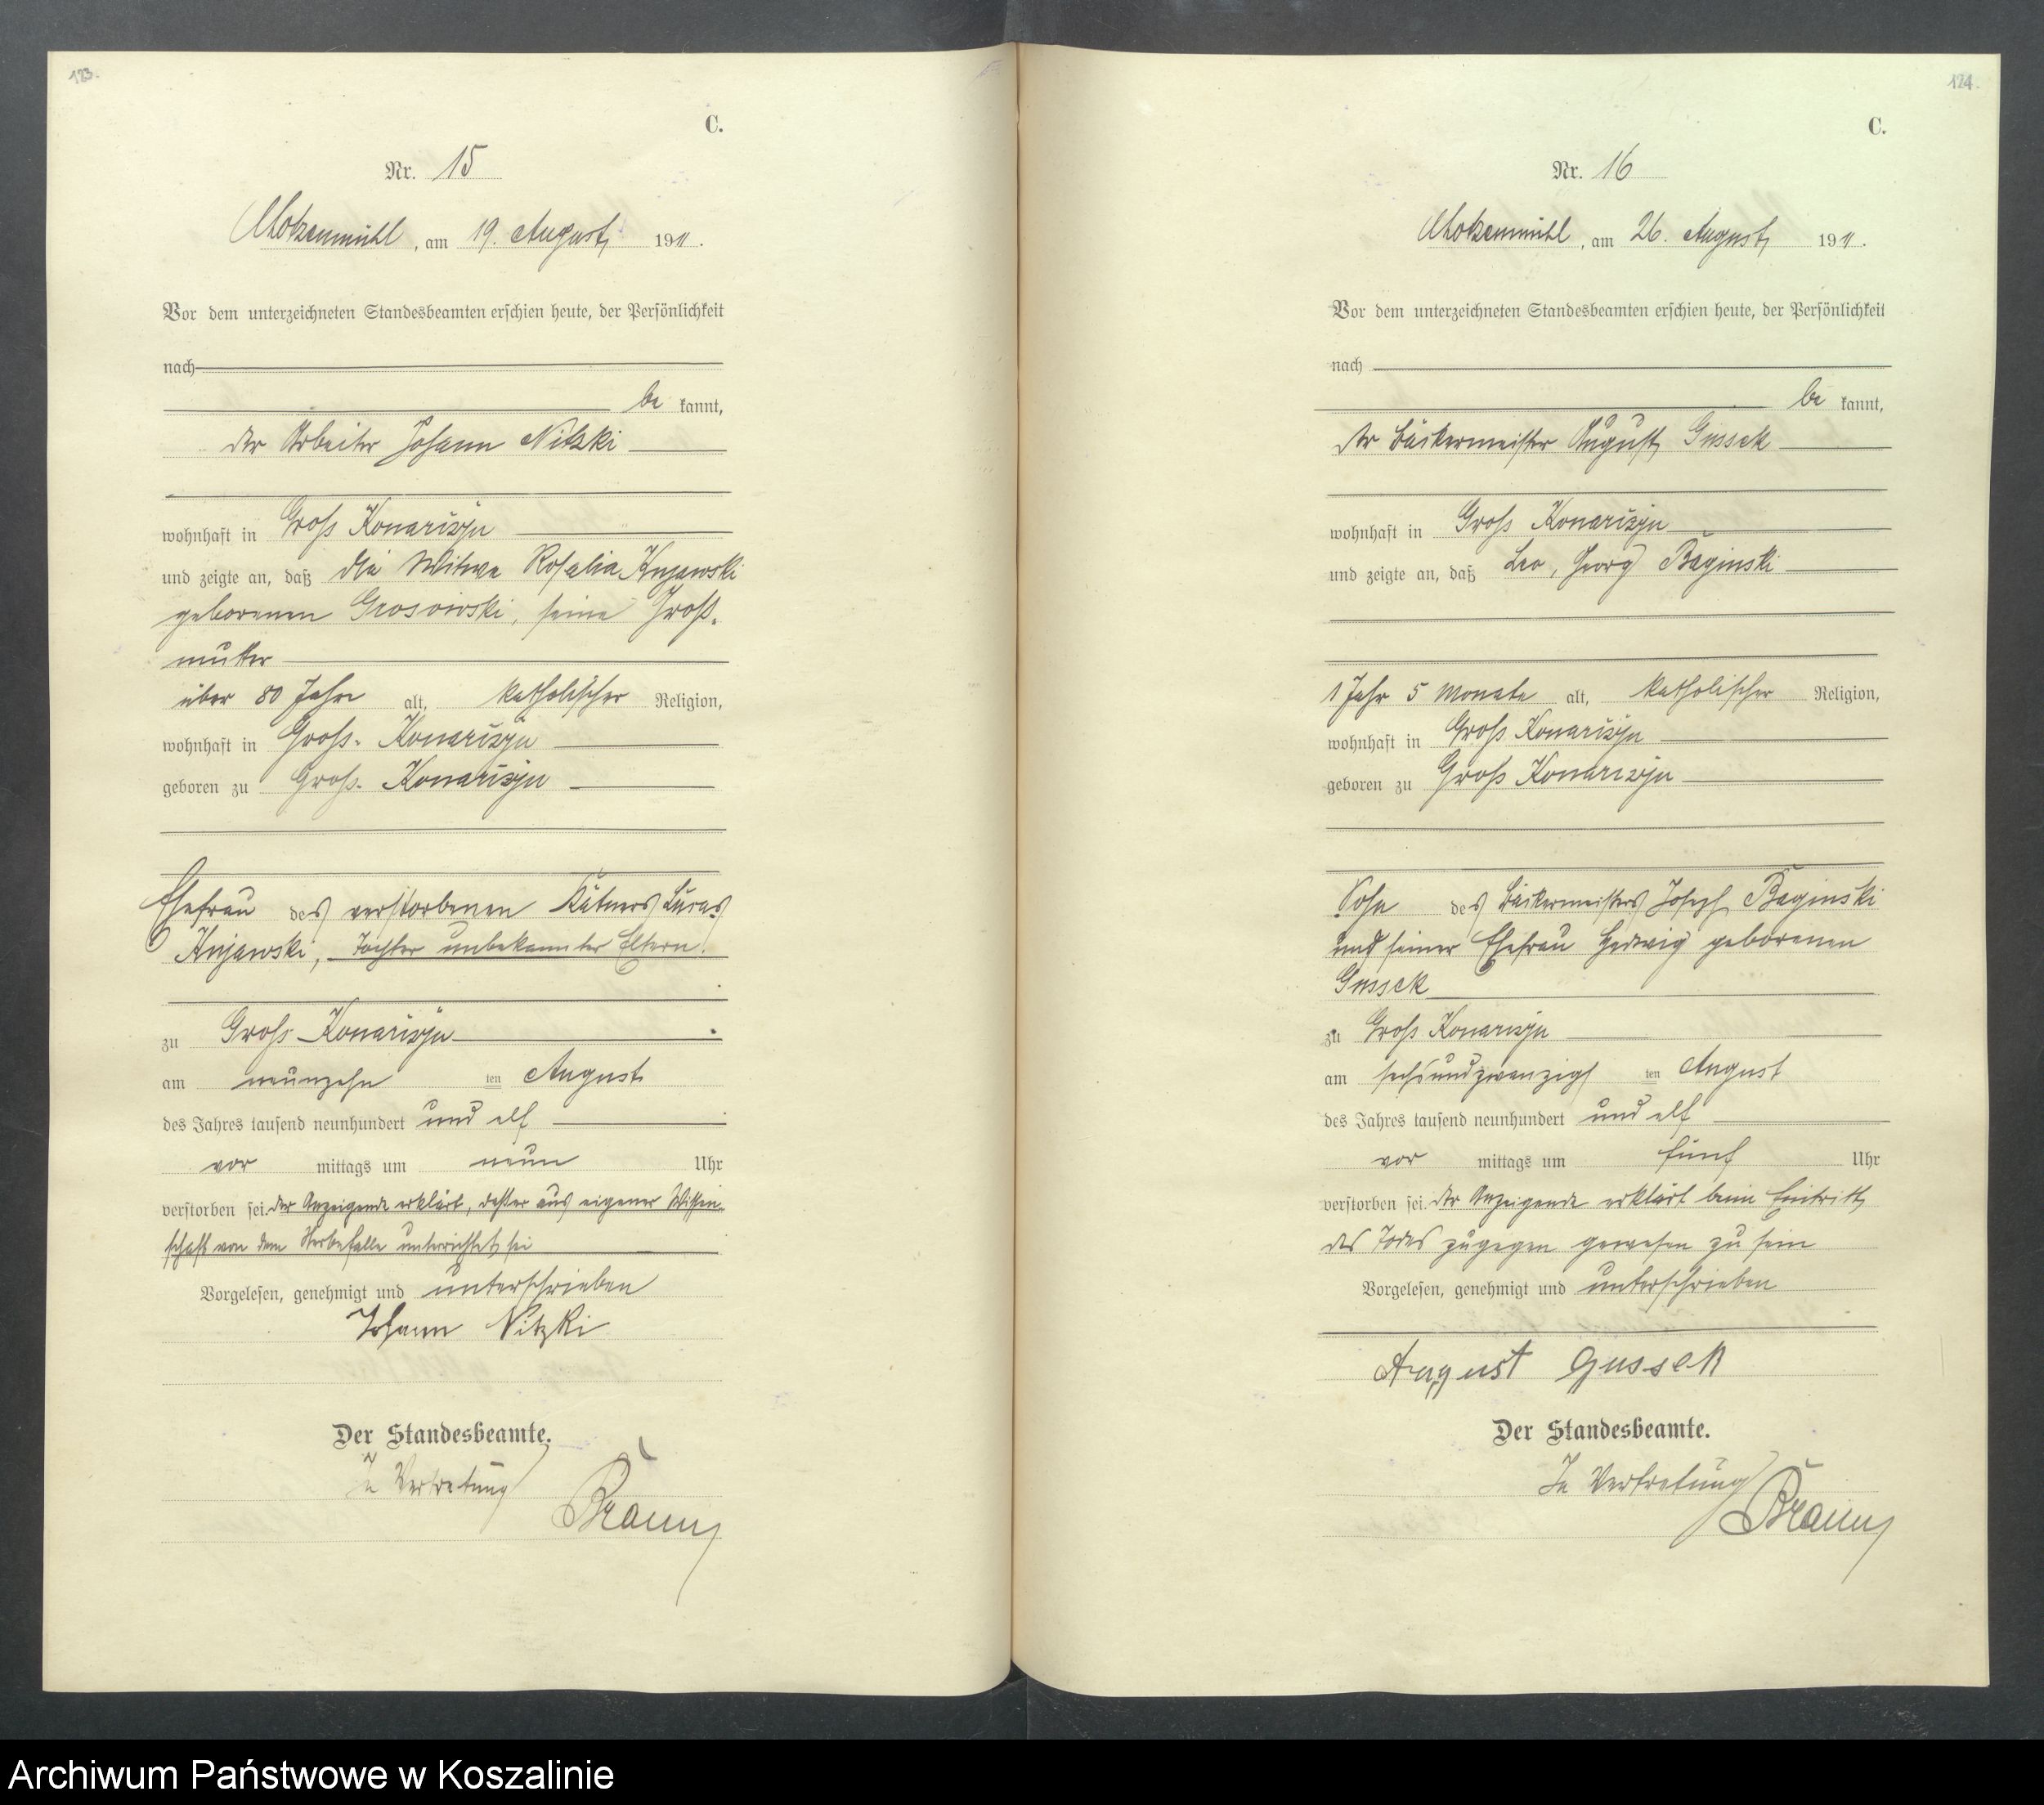 123.
C.
Nr. 15
Mokenmühl, am 19. August 1911.
Vor dem unterzeichneten Standesbeamten erschien heute, der Persönlichkeit
nach
be kannt,
der Arbeiter Johann Nitzki
wohnhaft in Gross Konarczyn
und zeigte an, daß die Witwe Rosalia Kujawski
geborenen seine Groß-
mutter
über 80 Jahre alt, katholischer Religion,
wohnhaft in Gross-Konarczyn
geboren zu Gross-Konarczyn
Ehefrau des verstorbenen Kätners Lucas
Kujawski, Tochter unbekannter Eltern.
zu Gross-Konarczyn
am neunzehn ten August
des Jahres tausend neunhundert und elf
vor mittags um neun Uhr
verstorben sei. Der Anzeigende erklärt, daß er aus eigener Wissen-
schaft von dem Sterbefalle unterrichtet sei
Vorgelesen, genehmigt und unterschrieben
Johann Nitzki
Der Standesbeamte.
In Vertretung
Braun
124.
C.
Nr. 16
Mokenmühl, am 26. August 1911.
Vor dem unterzeichneten Standesbeamten erschien heute, der Persönlichkeit
nach
be kannt,
der Bäckermeister August Gussek
wohnhaft in Gross Konarczyn
und zeigte an, daß Leo, Georg Baginski
1 Jahr 5 Monate alt, katholischer Religion,
wohnhaft in Gross Konarczyn
geboren zu Gross Konarczyn
Sohn des Bäckermeisters Joseph Baginski
und seiner Ehefrau Hedwig geborenen
Gussek
zu Gross Konarczyn
am sechsundzwanzigs ten August
des Jahres tausend neunhundert und elf
vor mittags um fünf Uhr
verstorben sei. Der Anzeigende erklärt beim Eintritt
des Todes zugegen gewesen zu sein
Vorgelesen, genehmigt und unterschrieben
August Gussek
Der Standesbeamte.
In Vertretung
Braun
Archiwum Państwowe w Koszalinie